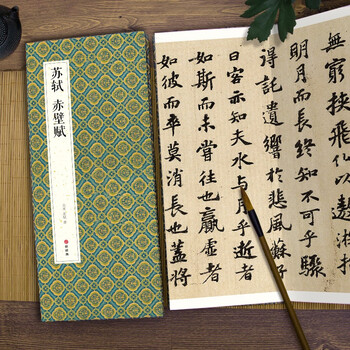 苏轼 赤壁赋
無窮挾飛仙以遨游抱
明月而長終知不可乎驟
得託遺響於悲風蘇子
曰客亦知夫水與月乎逝者
如斯而未嘗往也贏虛者
如彼而卒莫消長也蓋將